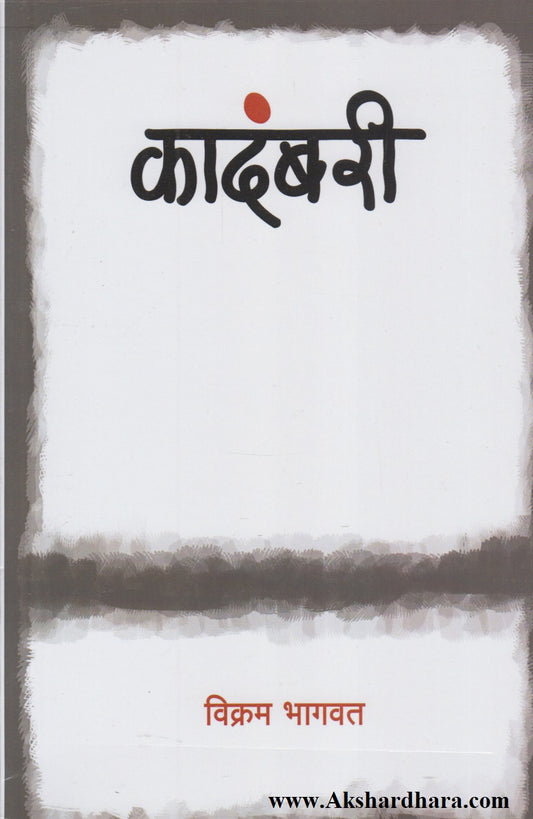 कादंबरी
विक्रम भागवत
www.Akshardhara.com